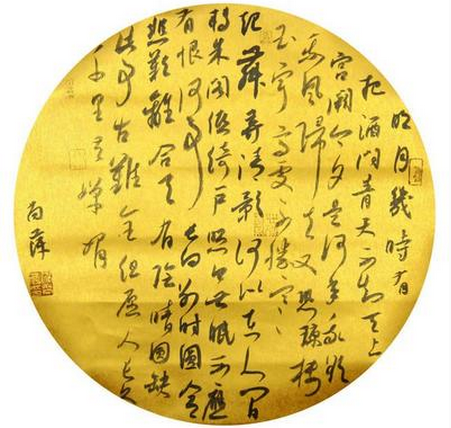 明月幾時有
把酒問青天不知天上
宮闕今夕是何年我欲
乘風歸去又恐瓊樓
玉宇高處不勝寒
起舞弄清影何似在人間
轉朱閣低綺戶照無眠不應
有恨何事長向別時圓人有
悲歡離合月有陰晴圓缺
此事古難全但願人長久
千里共嬋娟